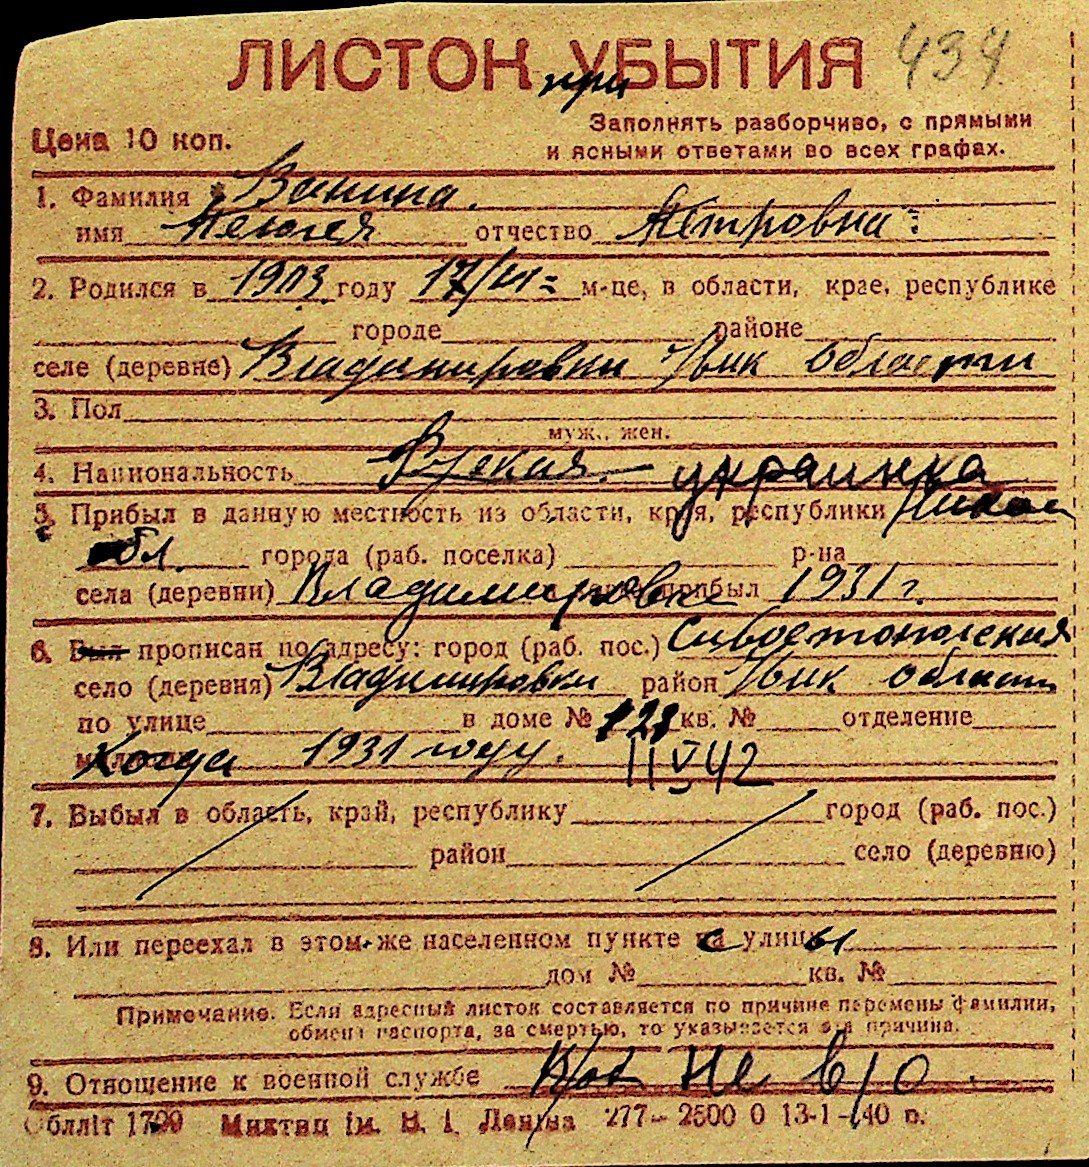 ЛИСТОК УБЫТИЯ 434
при
Цена 10 коп.
Заполнять разборчиво, с прямыми
и ясными ответами во всех графах.
1. Фамилия Ванина.
имя отчество Петровна
2. Родился в 1903 году 17/ м-це, в области, крае, республике
городе районе
селе (деревне) Владимировки Ник области
3. Пол
муж., жен.
4. Национальность Руская украинка
5. Прибыл в данную местность из области, края, республики Никол
обл. города (раб. поселка) р-на
села (деревни) Владимировка прибыл 1931 г.
6. Был прописан по адресу: город (раб. пос.)
село (деревня) Владимировки район Ник области
по улице в доме № 128 кв. № отделение
Когда 1931 году. 11 V 42
7. Выбыл в область, край, республику город (раб. пос.)
район село (деревню)
8. Или переехал в этом-же населенном пункте с улицы
дом № кв. №
Примечание. Если адресный листок составляется по причине перемены фамилии,
обмена паспорта, за смертью, то указывается эта причина.
9. Отношение к военной службе не в/о.
Обллiт 1799 Миктвп iм. В. І. Ленiна 277 - 2500 0 13-1-40 п.